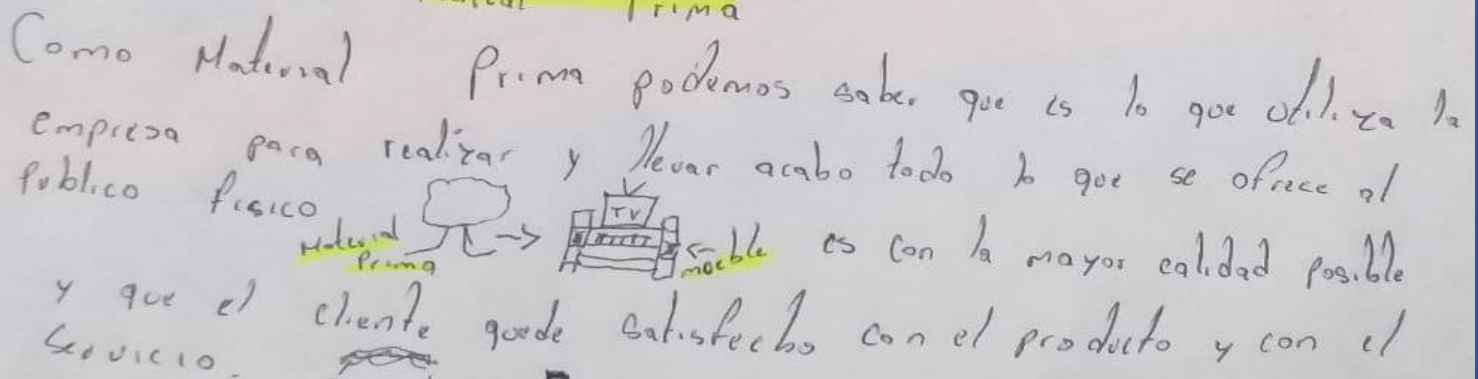 Prima
Como Material Prima podemos saber que es lo que utiliza la
empresa para realizar y llevar acabo todo lo que se ofrece al
publico fisico
Material Prima
TV
mueble
es con la mayor calidad posible
y que el cliente quede satisfecho con el producto y con el
Servicio.